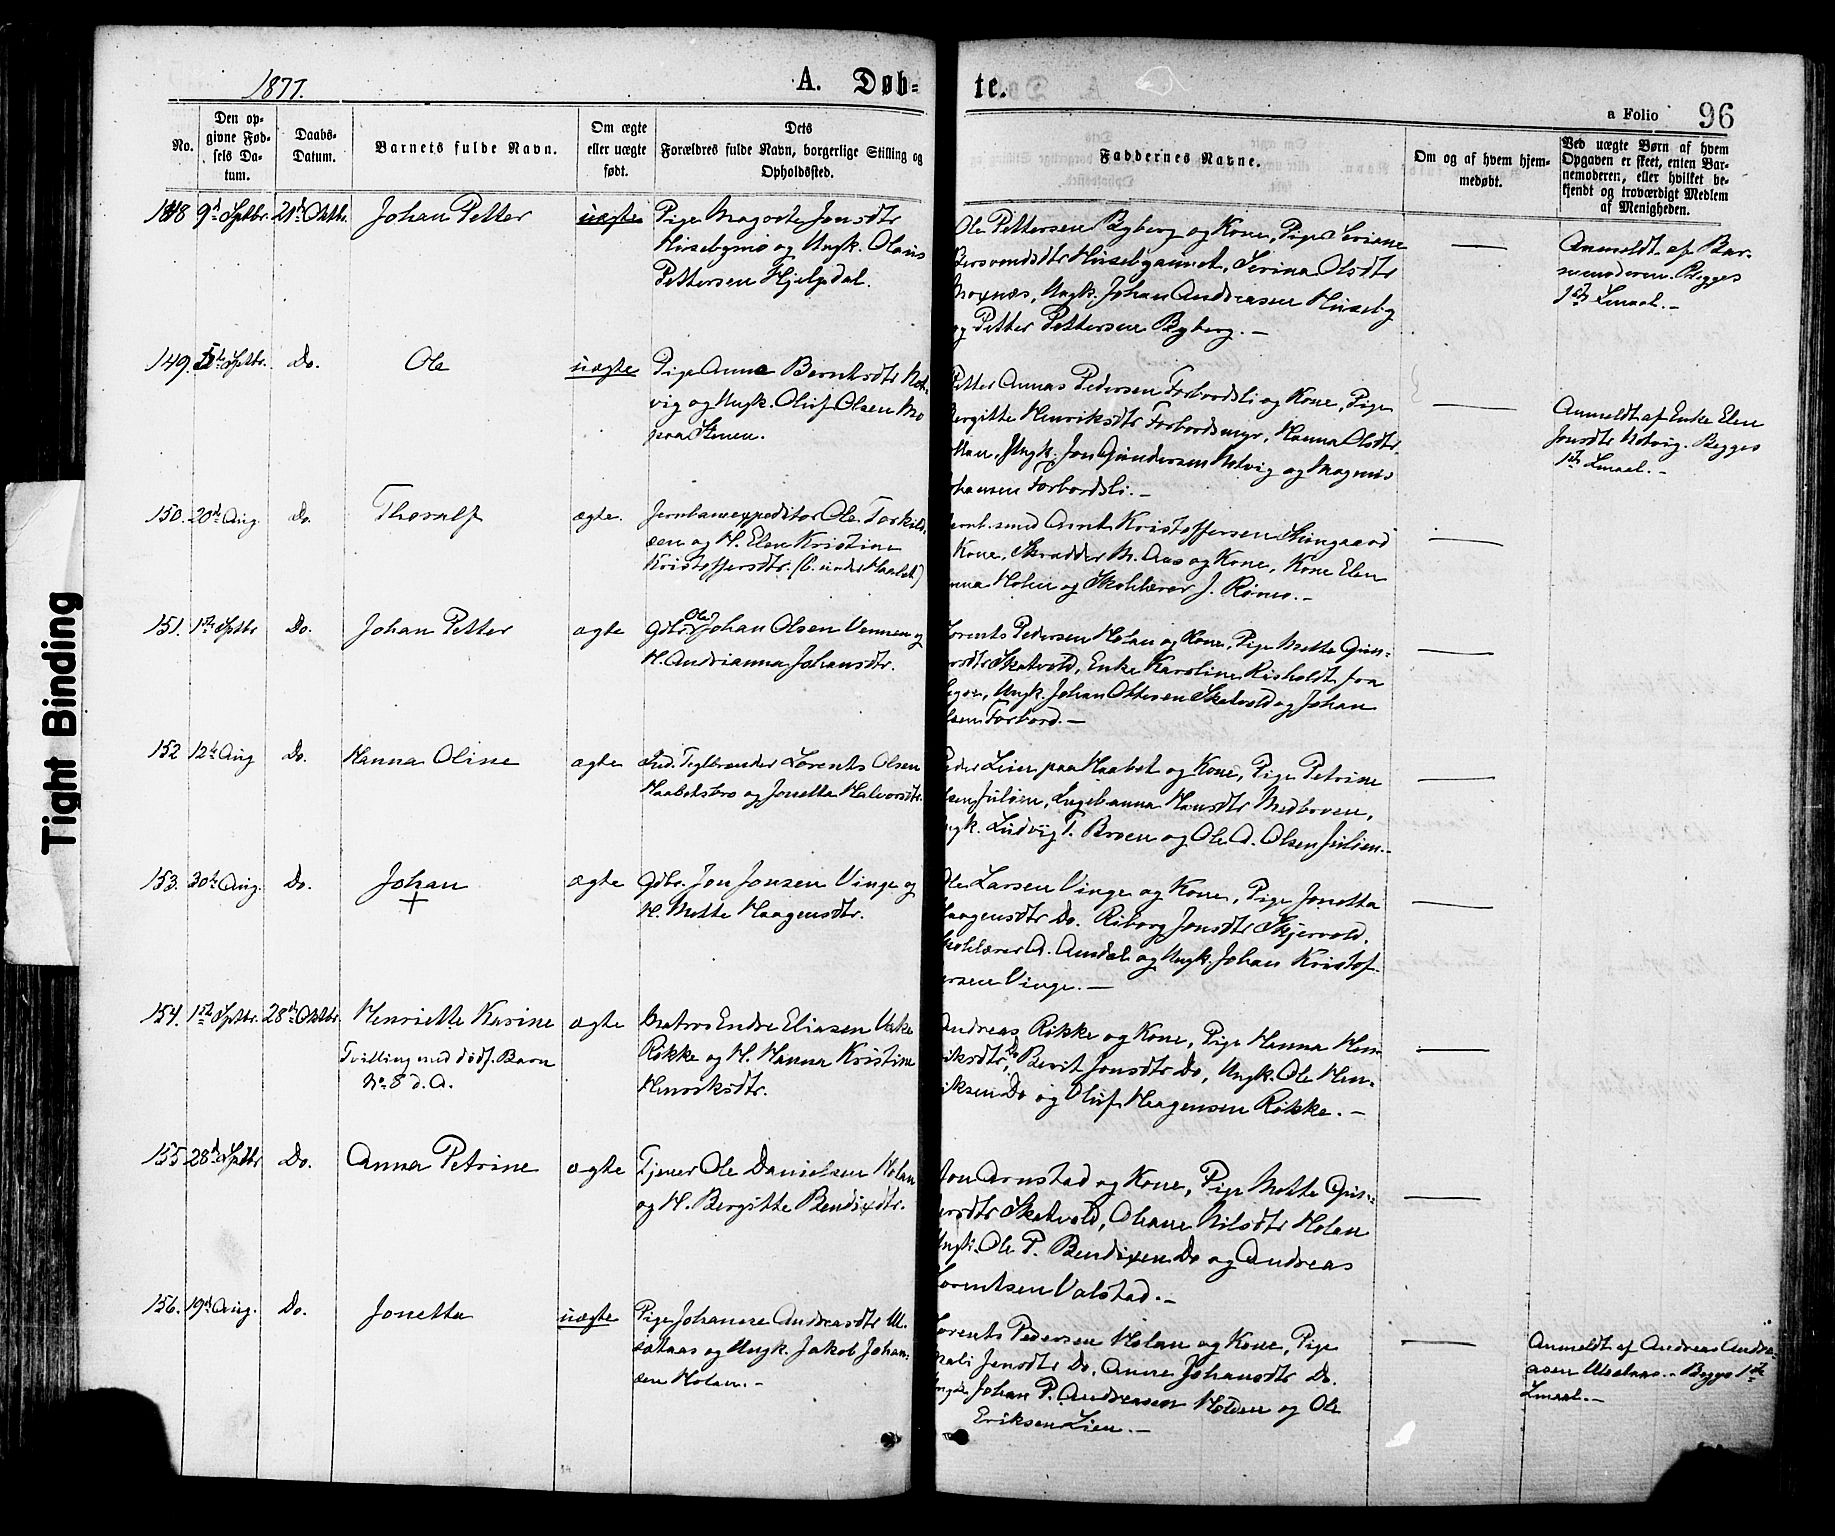 1877.
A. Døb-
te.
a Folio 96
No.
Den op-
givne Fød-
sels Da-
tum.
Daabs-
Datum.
Barnets fulde Navn.
Om ægte
eller uægte
født.
Dets
Forældres fulde Navn, borgerlige Stilling og
Opholdssted.
Faddernes Navne.
Om og af hvem hjem-
medøbt.
Ved uægte Børn af hvem
Opgaven er skeet, enten Bar-
nemoderen, eller hvilket be-
kjendt og troværdigt Medlem
af Menigheden.
148 9d Sptbr. 21d Oktbr. Johan Petter uægte
Pige Magrete Jonsdtr
Husebymo og Ungk. Olaus
Pettersen Hjelpdal.
Ole Pettersen Byberg og Kone, Pige Seriane
Bersvendsdtr Husebyaunet, Serina Olsdtr
Moxnæs, Ungk. Johan Andreasen Huseby
og Petter Pettersen Byberg. —
Anmeldt af Bar-
nemoderen. Begges
1ste Lmaal. —
149. Sptbr. Do. Ole uægte
Pige Anna Berntsdtr Hot-
vig og Ungk. Oluf Olsen Mo
paa Stenen.
Petter Annas Pedersen Forbordsli og Kone, Pige
Bergitte Henriksdtr Forbordsmyr, Hanna Olsdtr
Ungk. Jon Gundersen Hotvig og Magnus
Johansen Forbordsli. —
Anmeldt af Enke Elen
Jonsdtr Hotvig. Begges
1ste Lmaal. —
150. 20de Aug. Do. Thoralf ægte.
Jernbaneexpeditør Ole Torkild-
sen og H. Elen Kristine
Kristoffersdtr. (B. under Haabet)
Jernb.smed Arnt Kristoffersen Stungaard
Kone, Skrædder M. Aas og Kone, Kone Elen
Anna Holen og Skolelærer J. Rømo. —
151. 1ste Sptbr Do. Johan Petter ægte
Gdbr. Ole Johan Olsen Vennen og
H. Andrianna Johansdtr.
Lorents Pedersen Holan og Kone, Pige Mette Gun-
dersdtr Skatvold, Enke Karoline Risholdt fra
Ungk. Johan Ottesen Skatvold og Johan
Olsen Forbord. —
152 12te Aug Do. Hanna Oline ægte
Ind. Teglbrænder Lorents Olsen
Haabetsbro og Jonetta Halvorsdtr.
Peder Leien paa Haabet og Kone, Pige Petrine
Olsen Julsien, Ingebanna Hansdtr Medboven,
Ungk. Ludvig T. Broen og Ole A. Olsen Julsien. —
153. 30te Aug. Do. Johan ægte
+
Gdbr. Jon Jonsen Vinge og
H. Mette Haagensdtr.
Ole Larsen Vinge og Kone, Pige Jonetta
Haagensdtr Do. Riborg Jonsdtr Skjervold,
Skolelærer A. Amdal og Ungk. Johan Kristof-
fersen Vinge. —
154. 1ste Sptbr. 28de Oktbr. Henriette Karine ægte
Tvilling med dødf. Barn
No 8 d. A.
Matros Endre Eliasen
Røkke og H. Hanna Kristine
Henriksdtr.
Andreas Røkke og Kone, Pige Hanna Hen-
riksdtr Do, Berit Jonsdtr Do, Ungk. Ole Hen-
riksen Do og Oluf Haagensen Røkke. —
155. 28de Sptbr Do. Anna Petrine ægte
Tjener Ole Danielsen Holan
og H. Bergitte Bendixdtr.
Jon Arnstad og Kone, Pige Mette Gun-
dersdtr Skatvold, Ohane Nilsdtr Holan
Ungk. Ole P. Bendixen Do og Andreas
Lorentsen Valstad. —
156. 19de Aug. Do. Jonetta uægte
Pige Johanne Andreasdtr Ul-
setaas og Ungk. Jakob Johan-
sen Holan. —
Lorents Pedersen Holan og Kone, Pige
Mali Jensdtr Do, Anne Johansdtr Do.
Ungk. Johan P. Andreasen Holan og Ole
Eriksen Lien. —
Anmeldt af Andreas Andre-
asen Ulsetaas. Begges 1ste
Lmaal. —
Tight Binding